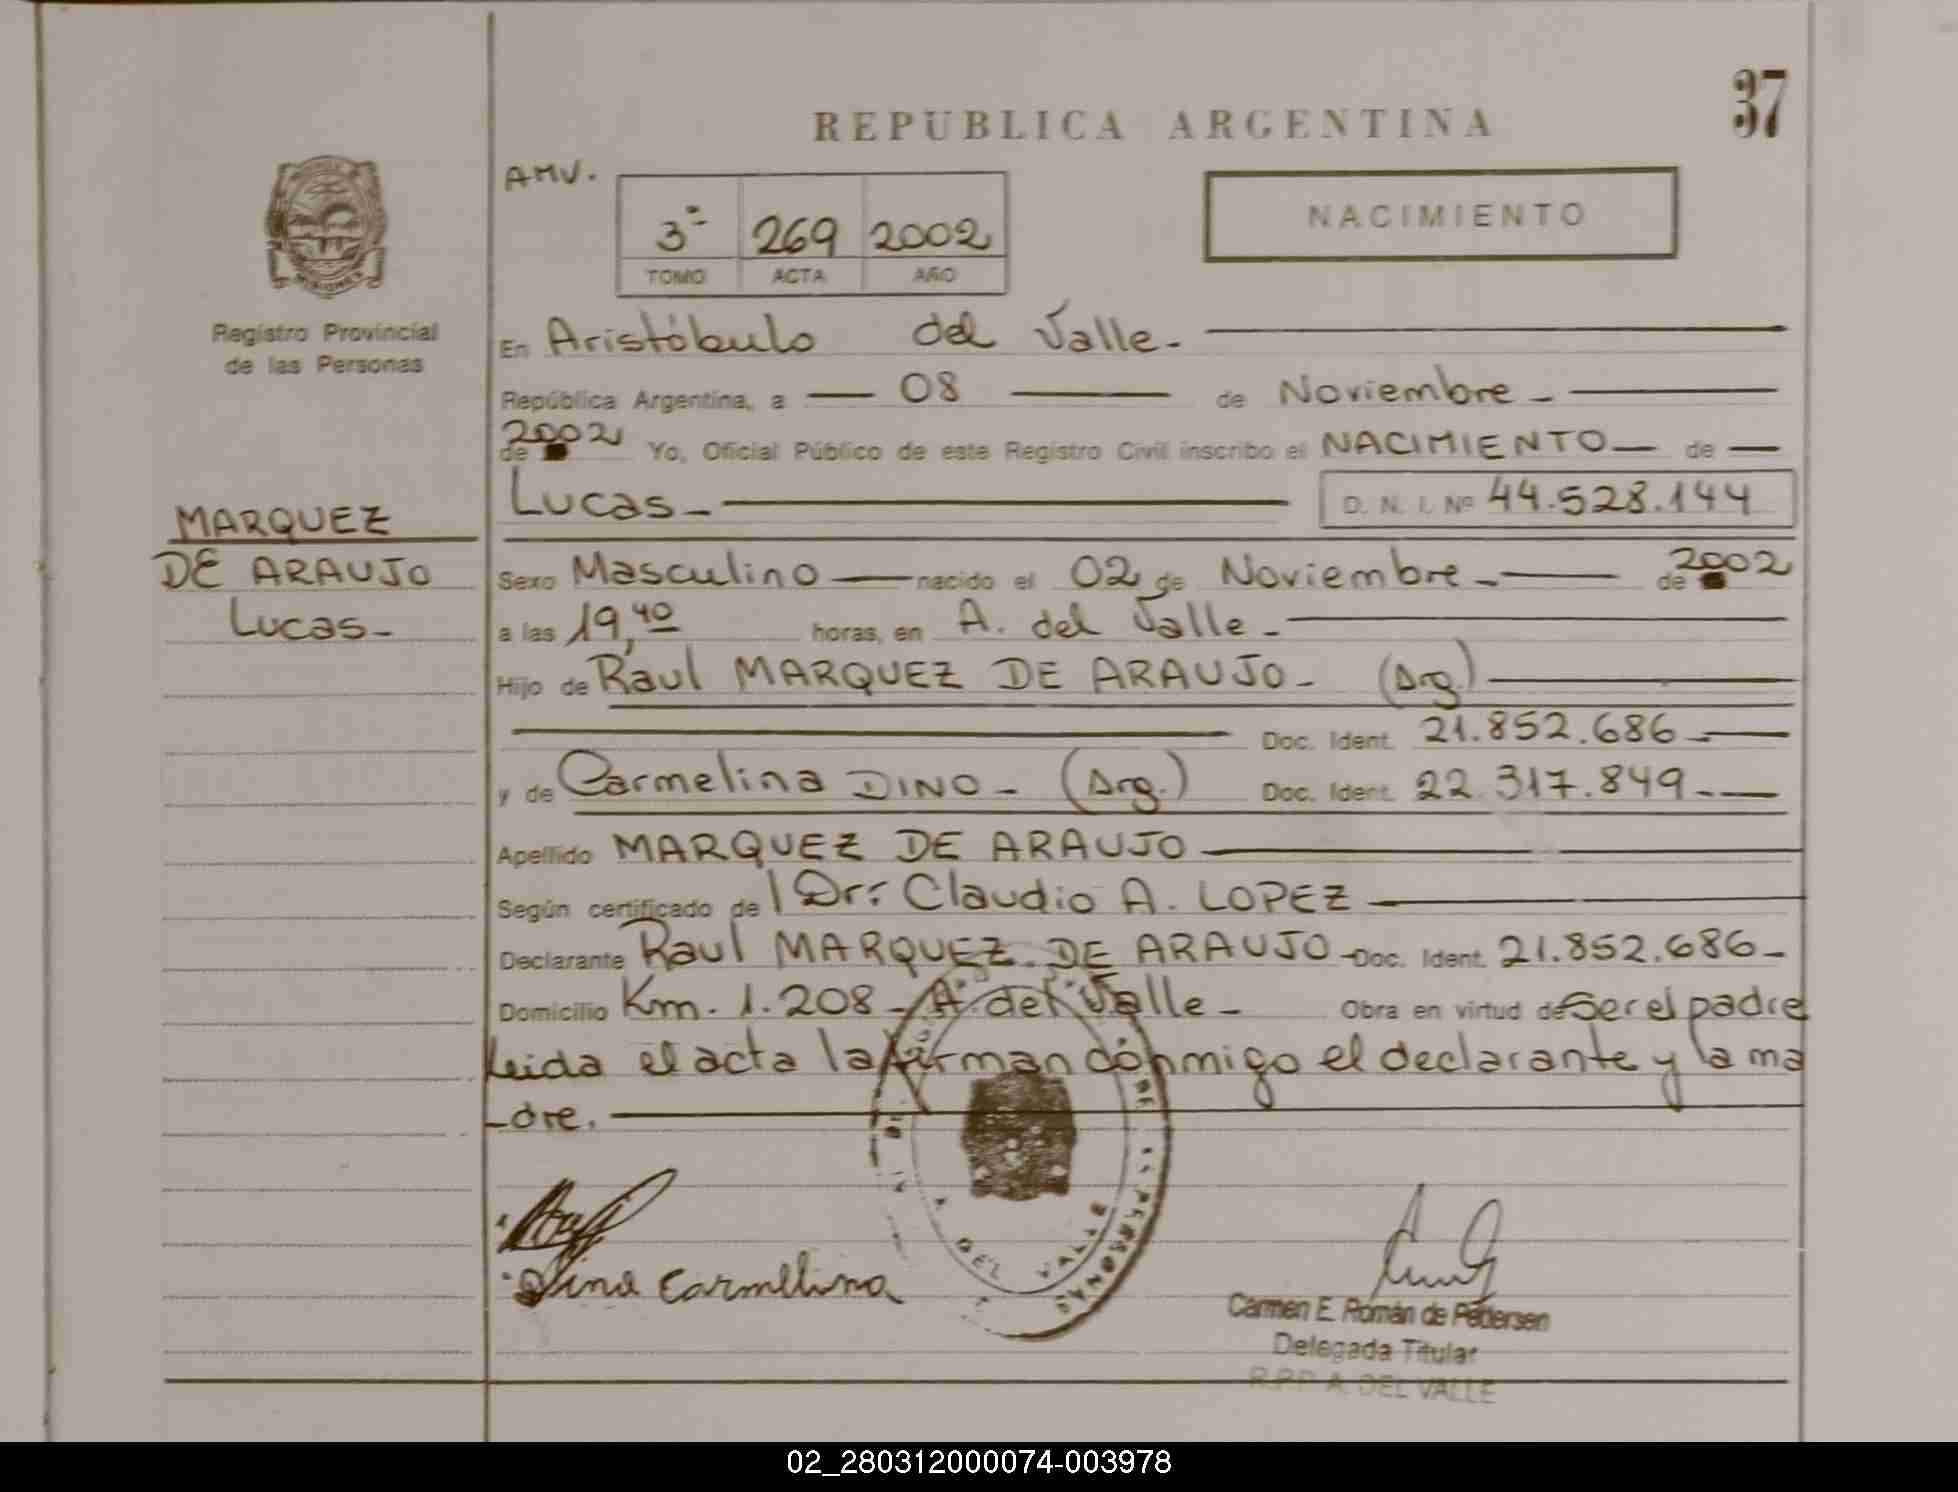 37
REPUBLICA ARGENTINA
AMV.
3º 269 2002
TOMO ACTA AÑO
NACIMIENTO
MISIONES
Registro Provincial
de las Personas
MARQUEZ
DE ARAUJO
Lucas-
En Aristóbulo del Valle-
República Argentina, a 08 de Noviembre-
de 2002 Yo, Oficial Público de este Registro Civil inscribo el NACIMIENTO de
Lucas- D. N. I. Nº 44.528.144
Sexo Masculino nacido el 02 de Noviembre- de 2002
a las 19,40 horas, en A. del Valle-
Hijo de Raul MARQUEZ DE ARAUJO- (Arg.)
Doc. Ident. 21.852.686
y de Carmelina DINO- (Arg.) Doc. Ident. 22.317.849
Apellido MARQUEZ DE ARAUJO
Según certificado de l Dr: Claudio A. LOPEZ
Declarante Raul MARQUEZ DE ARAUJO- Doc. Ident. 21.852.686-
Domicilio Km. 1.208- A. del Valle- Obra en virtud de ser el padre
Leida el acta la firman conmigo el declarante y la ma
-dre.
Dino Carmelina
PERSONAS
DEL VALLE
Carmen E. Román de Pedersen
Delegada Titular
R.P.P. A. DEL VALLE
02_280312000074-003978